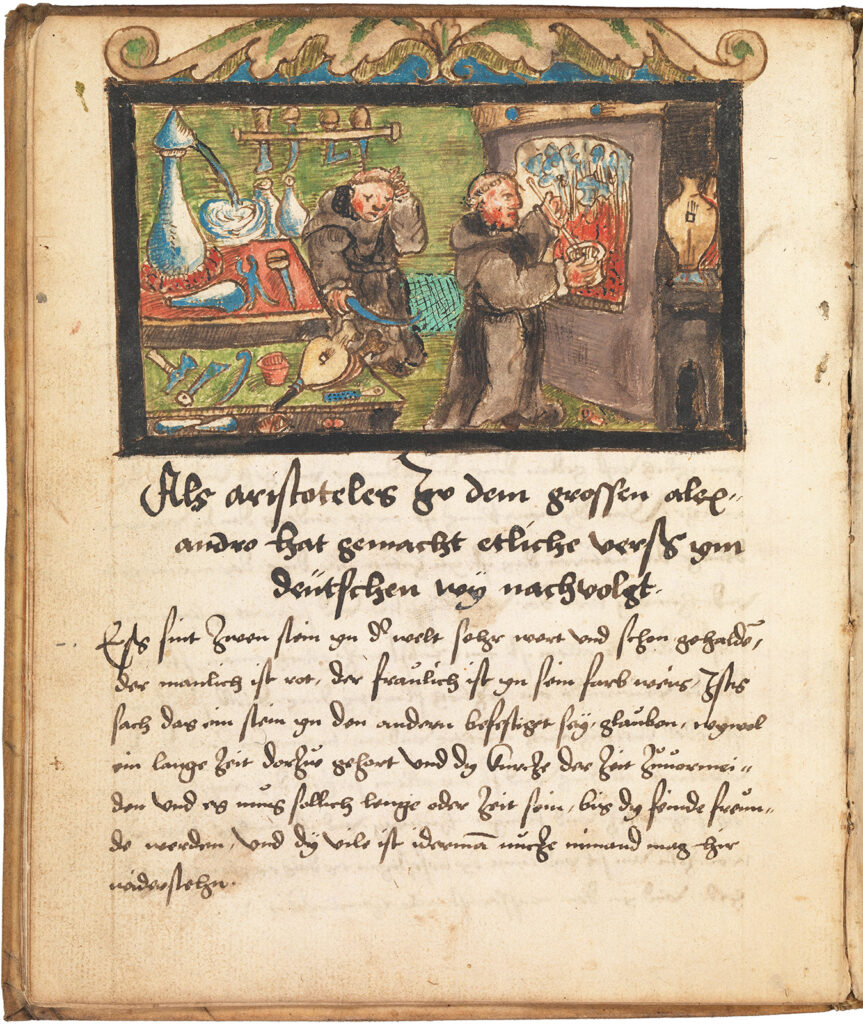 Als aristoteles Zv dem grossen alex-
andro hat gemacht etliche verß ym
deütschen wÿ nachvolgt.
Eß sint Zwen stein yn dʼ welt sehr wert vnd schon gehaldē,
der manlich ist rot, der fraülich ist yn sein farb weis, Ists
sach das ein stein yn den andern befestiget seÿ, glaüben, wywol
ein lange Zeit dorZw gehort vnd dy kurcZe der Zeit Zuuormei-
den vnd es müs sollich lenge oder Zeit sein, bis dy feinde freun-
de werden, vnd dÿ vile ist idermā nücZe nimand mag hir
widerstehn.